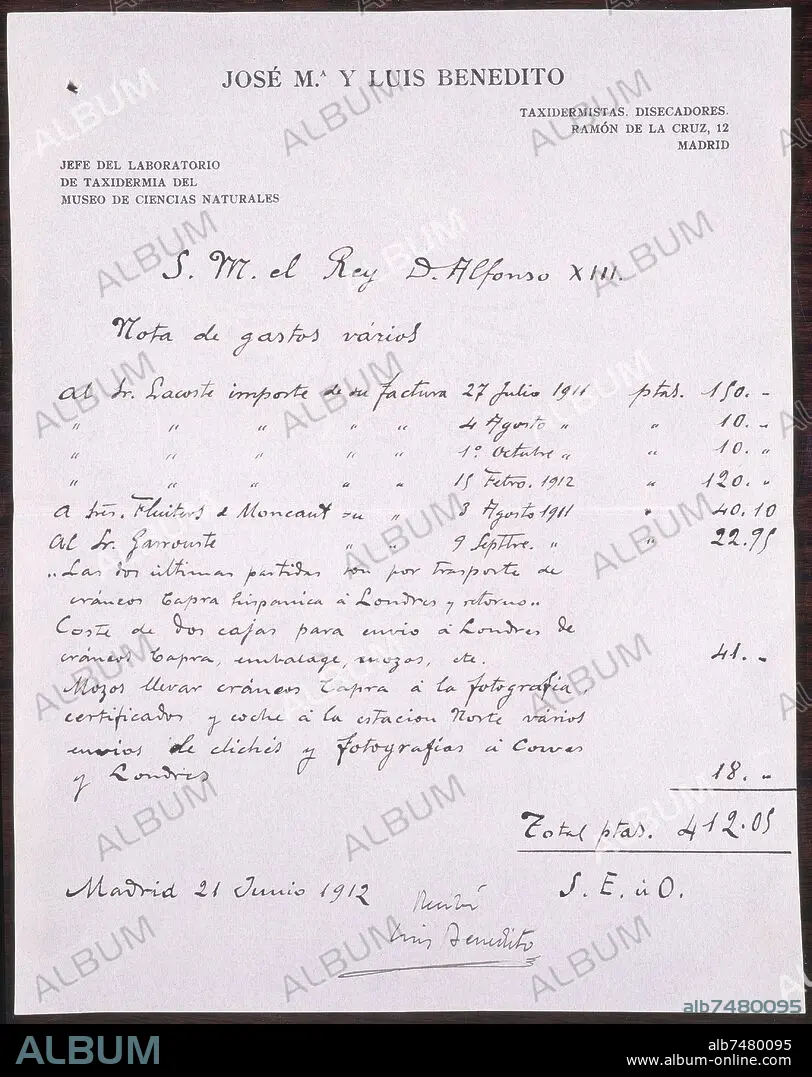 JOSÉ M.ª Y LUIS BENEDITO
TAXIDERMISTAS. DISECADORES.
RAMÓN DE LA CRUZ, 12
MADRID
JEFE DEL LABORATORIO
DE TAXIDERMIA DEL
MUSEO DE CIENCIAS NATURALES
S. M. el Rey D. Alfonso XIII.
Nota de gastos vários
Al Sr. Lacoste importe de su factura 27 Julio 1911 ptas. 150. "
" " " " " 4 Agosto " " 10. "
" " " " " 1º Octubre " " 10. "
" " " " " 15 Febro. 1912 " 120. "
A Sres. Fluiters & Moncaut su " 3 Agosto 1911 " 40.10
Al Sr. Garrouste " " 9 Septtre. " " 22.95
"Las dos últimas partidas son por trasporte de
cráneos Capra hispanica á Londres y retorno"
Coste de dos cajas para envio á Londres de
cráneos Capra, embalage, mozos, etc. 41. "
Mozos llevar cráneos Capra á la fotografía
certificados y coche á la estacion Norte vários
envios de clichés y fotografías á Cowes
y Londres 18. "
Total ptas. 412.05
Madrid 21 Junio 1912 S. E. ú O.
Recibí
Luis Benedito
ALBUM
alb7480095
ALBUM
alb7480095
www.album-online.com